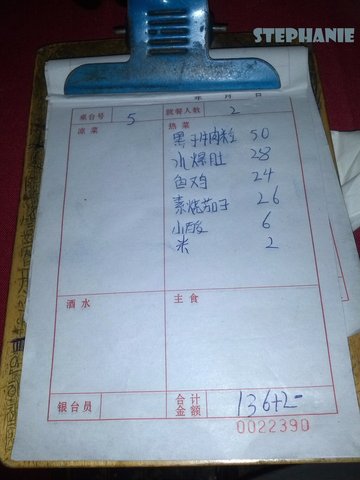 STEPHANIE
年 月 日
桌台号 5 就餐人数 2
凉菜 热菜
黑干牛肉粒 50
水爆肚 28
鱼鸡 24
素烧茄子 26
小酸 6
米 2
酒水 主食
银台员 合计金额 136+2-
0022390